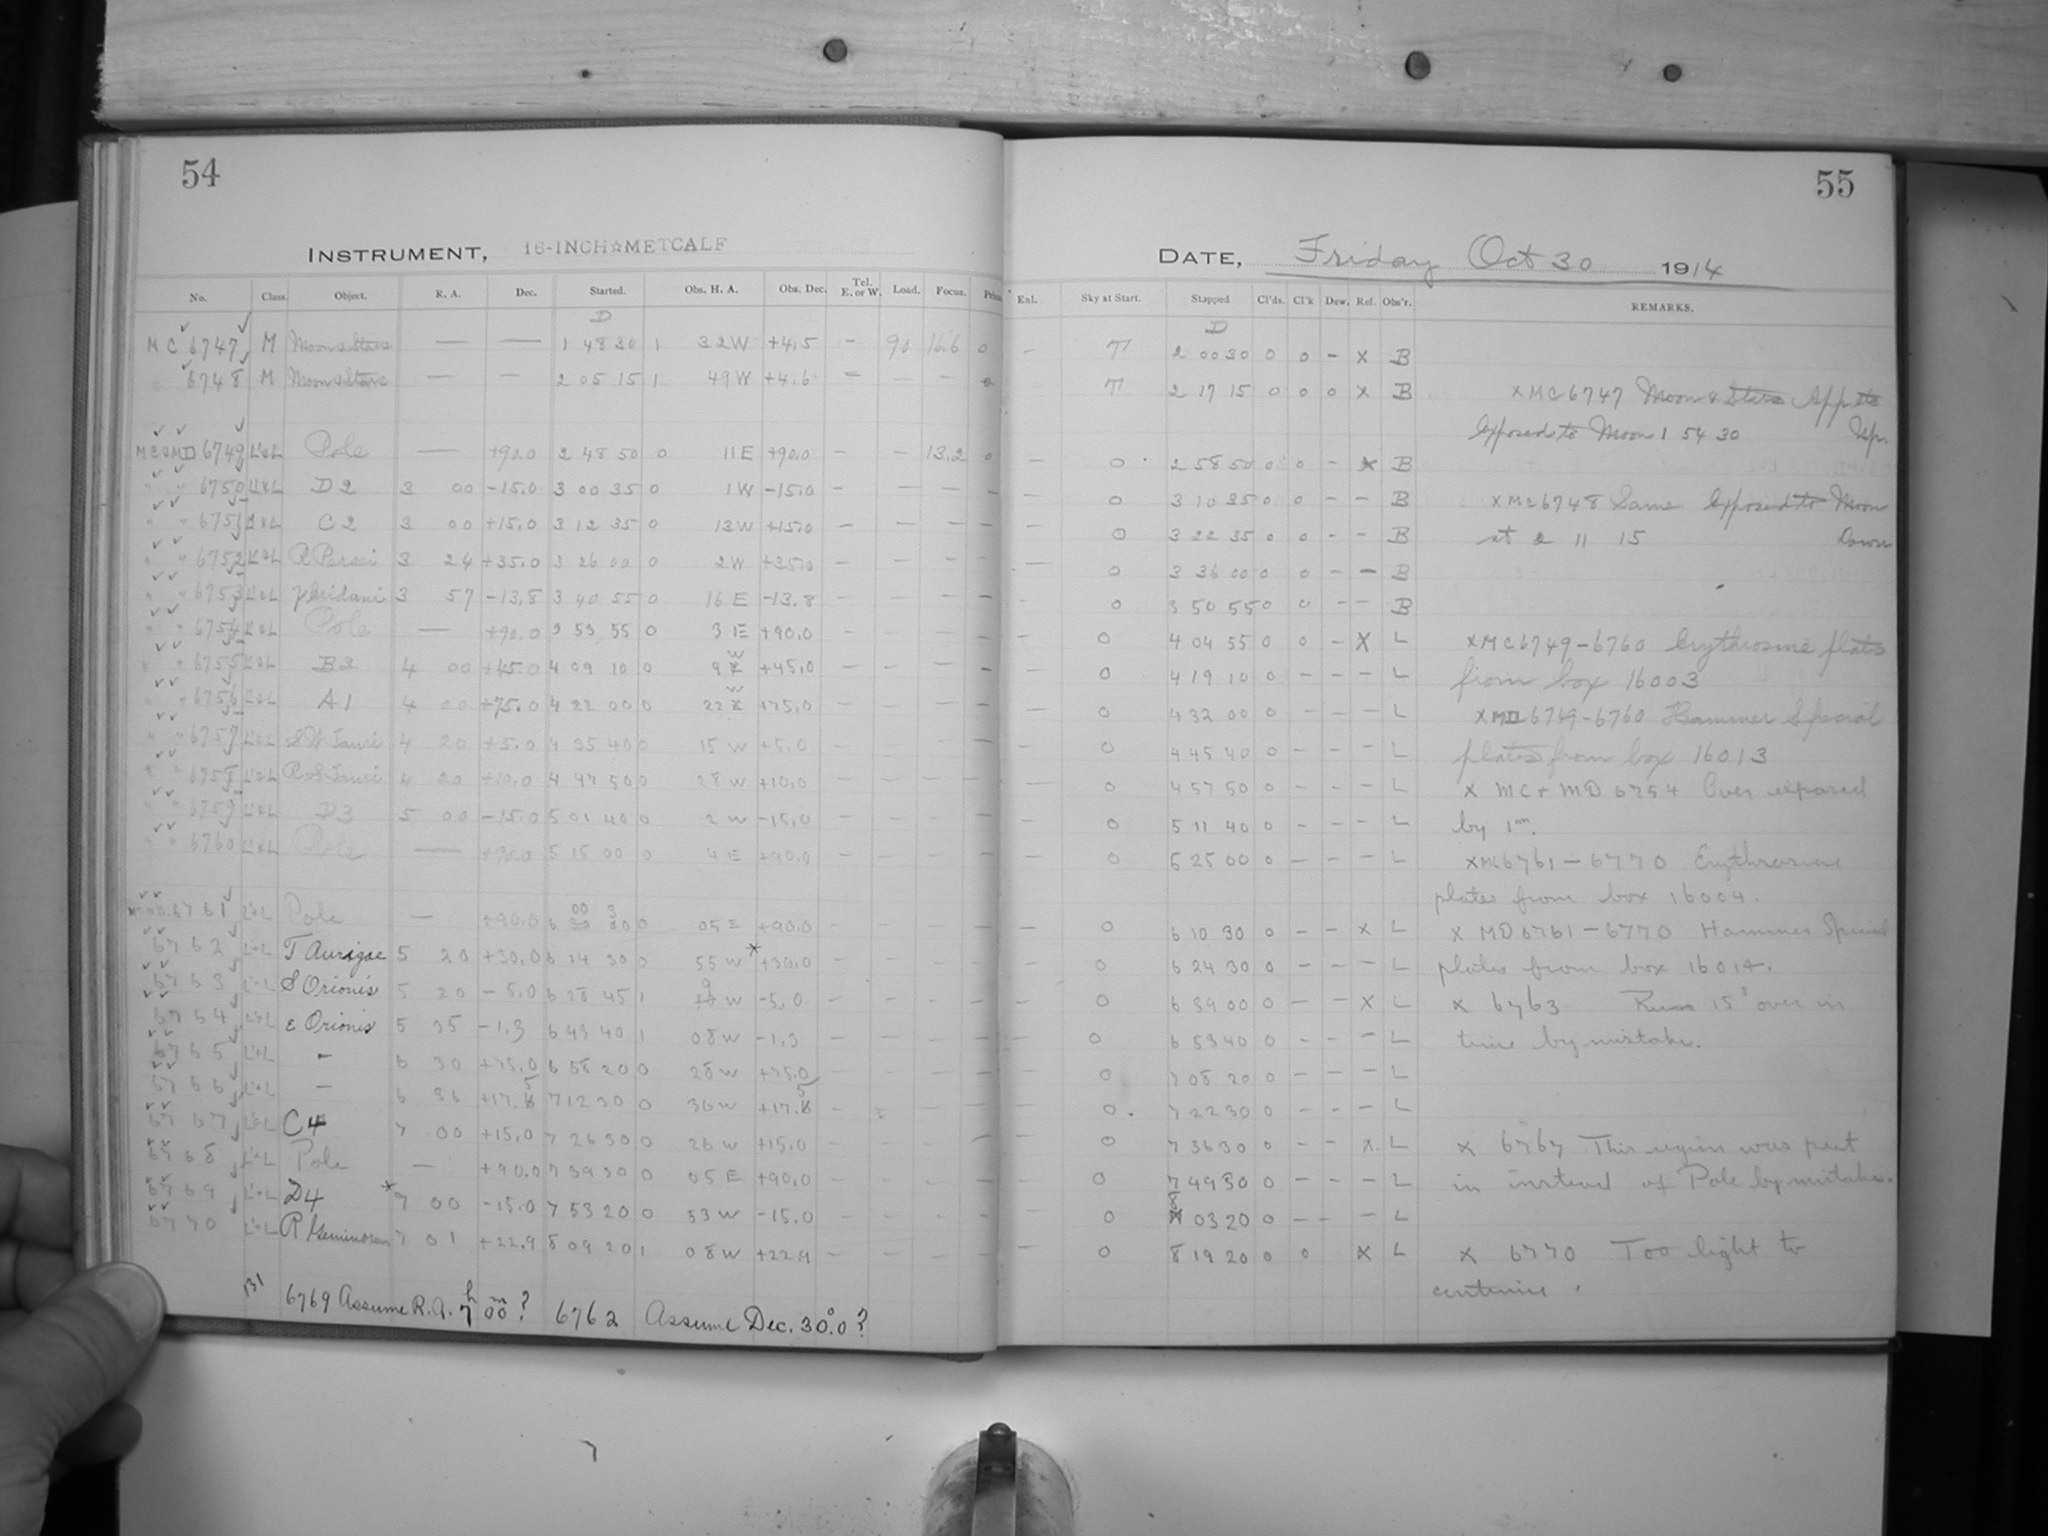 54
INSTRUMENT, 16-INCH☆METCALF
No. Class. Object. R. A. Dec. Started. Obs. H. A. Obs. Dec. Tel. E. or W. Load. Focus.
D
MC 6747 M Moon & Stars — — 1 48 30 1 32 W +4.5 - 90 16.6 0
6748 M Moon & Stars — — 2 05 15 1 49 W +4.6 - - - 0
MC&MD 6749 L&L Pole — +90.0 2 48 50 0 11 E +90.0 - - 13.2 0
" " 6750 L&L D2 3 00 -15.0 3 00 35 0 1 W -15.0 - - - -
" " 6751 L&L C2 3 00 +15.0 3 12 35 0 13 W +15.0 - - - -
" " 6752 L&L R Persei 3 24 +35.0 3 26 00 0 2 W +35.0 - - - -
" " 6753 L&L γ Eridani 3 57 -13.8 3 40 55 0 16 E -13.8 - - - -
" " 6754 L&L Pole — +90.0 3 53 55 0 3 E +90.0 - - - -
" " 6755 L&L B3 4 00 +45.0 4 09 10 0 9 W +45.0 - - - -
" " 6756 L&L A1 4 00 +75.0 4 22 00 0 22 W +75.0 - - - -
" " 6757 L&L SW Tauri 4 20 +5.0 4 35 40 0 15 W +5.0 - - - -
" " 6758 L&L R S Tauri 4 20 +10.0 4 47 50 0 28 W +10.0 - - - -
" " 6759 L&L D3 5 00 -15.0 5 01 40 0 2 W -15.0 - - - -
" " 6760 L&L Pole — +90.0 5 15 00 0 4 E +90.0 - - - -
6761 L&L Pole — +90.0 6 00 30 0 05 E +90.0
6762 L&L T Aurigae 5 20 +30.0 6 14 30 0 55 W * +30.0
6763 L&L S Orionis 5 20 -5.0 6 28 45 1 9 W -5.0 - - - -
6764 L&L ε Orionis 5 35 -1.3 6 43 40 1 08 W -1.3 - - - -
6765 L&L - 6 30 +75.0 6 58 20 0 28 W +75.0 - - - -
6766 L&L - 6 36 +17.5 7 12 30 0 36 W +17.5 - - - -
6767 L&L C4 7 00 +15.0 7 26 30 0 26 W +15.0 - - - -
6768 L&L Pole — +90.0 7 39 30 0 05 E +90.0 - - - -
6769 L&L D4 * 7 00 -15.0 7 53 20 0 53 W -15.0 - - - -
6770 L&L R Geminorum 7 01 +22.9 8 09 20 1 08 W +22.9 - - - -
131 6769 Assume R.A. 7h 00m? 6762 Assume Dec. 30°.0?
55
DATE, Friday Oct 30 1914
Enl. Sky at Start. Stopped Cl'ds. Cl'k Dew. Ref. Obs'r. REMARKS.
D
- 7 2 00 30 0 0 - x B
7 2 17 15 0 0 0 x B x MC 6747 Moon & Stars
Exposed to Moon 1 54 30
- 0 2 58 50 0 0 - x B
- 0 3 10 35 0 0 - - B x MC 6748 Same Exposed to Moon
- 0 3 22 35 0 0 - - B at 2 11 15 Down
- 0 3 36 00 0 0 - - B
- 0 3 50 55 0 0 - - B
- 0 4 04 55 0 0 - X L x MC 6749-6760 Erythrosine plates
- 0 4 19 10 0 - - - L from box 16003
- 0 4 32 00 0 - - - L x MD 6749-6760 Hammer Special
- 0 4 45 40 0 - - - L plates from box 16013
- 0 4 57 50 0 - - - L x MC + MD 6754 Over exposed
- 0 5 11 40 0 - - - L by 1m.
- 0 5 25 00 0 - - - L x MC 6761-6770 Erythrosine
plates from box 16004.
- 0 6 10 30 0 - - x L x MD 6761-6770 Hammer Special
- 0 6 24 30 0 - - - L plates from box 16014.
- 0 6 39 00 0 - - x L x 6763 Runs 15s over in
- 0 6 53 40 0 - - - L time by mistake.
- 0 7 08 20 0 - - - L
- 0 7 22 30 0 - - - L
- 0 7 36 30 0 - - x L x 6767 This region was put
- 0 7 49 30 0 - - - L in instead of Pole by mistake.
- 0 8 03 20 0 - - - L
- 0 8 19 20 0 0 x L x 6770 Too light to
continue.